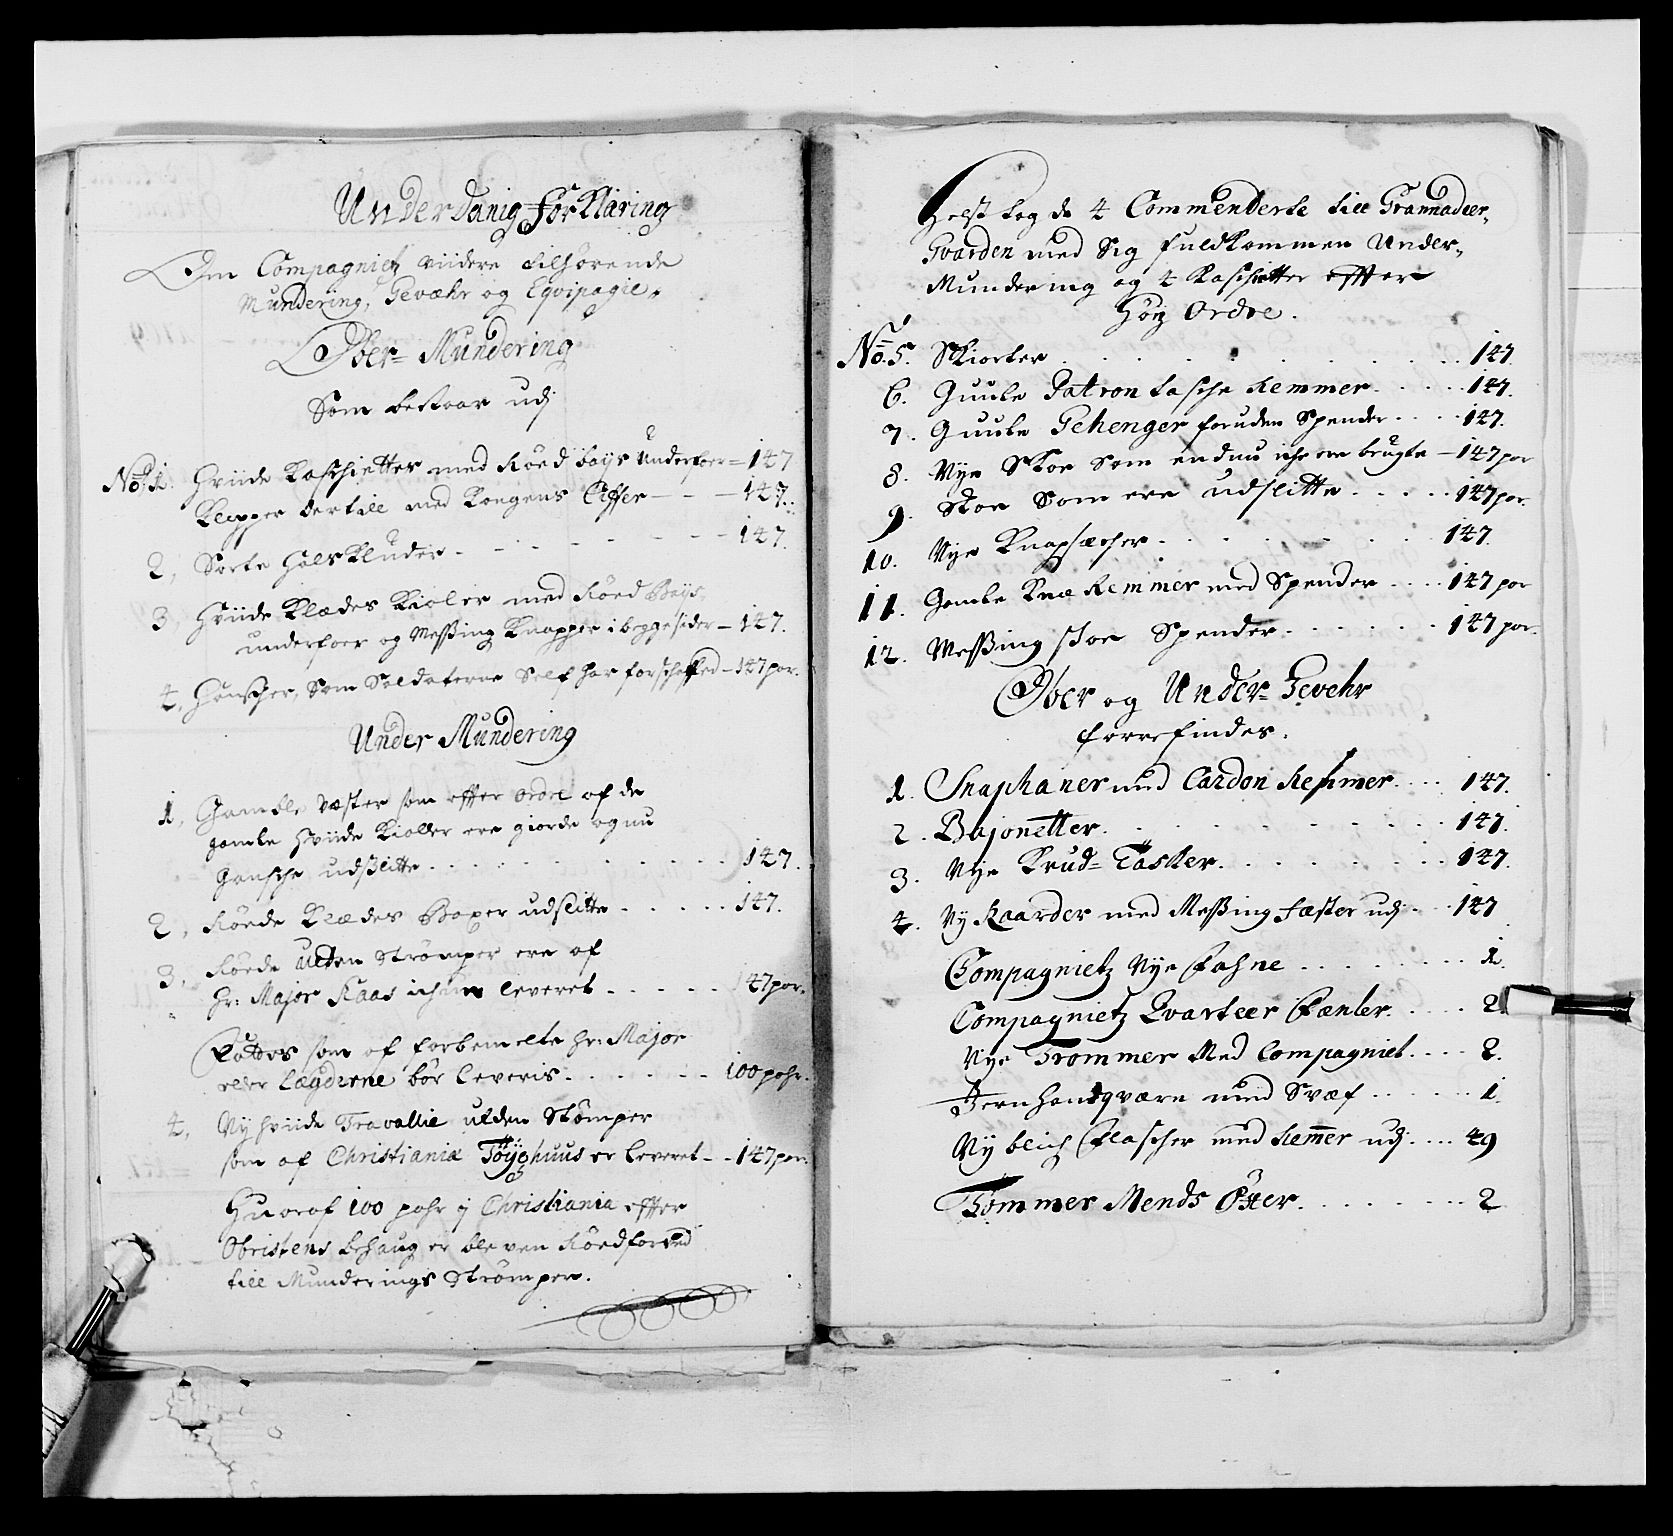 Underdanig forklaring
Om Compagniet viidere tilhørende
Mundering, Gevæhr og Eqvipagie.
Ober- Mundering
Som bestaar udj
No. 1. Hviide Kaschietter med Röed bays Underfoer = 147
Klapper dertill med Kongens Ciffer - - - 147.
2, Sorte Halskluder - - - - - - 147.
3, Hviide Klædes Kioler med Röed Bays
underfoer og Messing Knapper i begge sider - 147.
4, Handsker, Som Soldaterne Self har forschaffed - 147 par.
Under Mundering
1, Gamble Væster som effter ordre af de
gamle Hviide Kioller ere giorde og nu
Gansche udslitte . . . . . . 147.
2, Röede Klædes Boxer udslitte . . . . . 147.
3, Röede Ulden Strömper ere af
Hr: Major Kaas leveret . . . . . 147 par.
som af forbemelte Hr: Major
eller Lægderne bör leveris . . . . . 100 pahr.
4, Ny hviide Travallie ulden Stömper
som af Christianiæ Töyghuus er leveret - - 147 par.
Hvoraf 100 pahr j Christiania effter
Obristens behaug er bleven Röedfarved
till Munderings Strömper.
Helst tog de 4 Commenderte till Grannadeer-
Gvarden med Sig fuldkommen Under-
Mundering og 4 Kaschietter effter
Höy Ordre.
No. 5. Skiorter . . . . . . 147.
6. Guule Patron tasche Remmer . . . . . 147.
7. Guule Gehenger foruden Spender . . . . 147.
8. Nye Skoe Som endnu iche ere brugte - 147 par
9. Skoe Som ere udslitte . . . . . 147 par.
10. Nye Knapsæcher . . . . . . 147.
11. Gamle Knæ Remmer med Spender . . . . 147 par
12. Messing skoe Spender . . . . . . 147 par.
Ober og Under- Gevehr
forrefindes.
1. Snaphaner med Cardon Remmer . . . 147.
2. Bajonetter . . . . . . 147.
3. Nye Krud- Tasker . . . . . . 147.
4. Ny Kaarder med Messing fæster udj . . . 147
Compagnietz Nye Fahne . . . . . . 1.
Compagnietz Qvarteer Fænler . . . . . 2
Nye Trommer Med Compagniet . . . . 2.
Jern handqværn med Svæf . . . . . 1.
Ny blich Flascher med Remmer udj . . . 49
Tömmer Mends Öxer . . . . . . 2